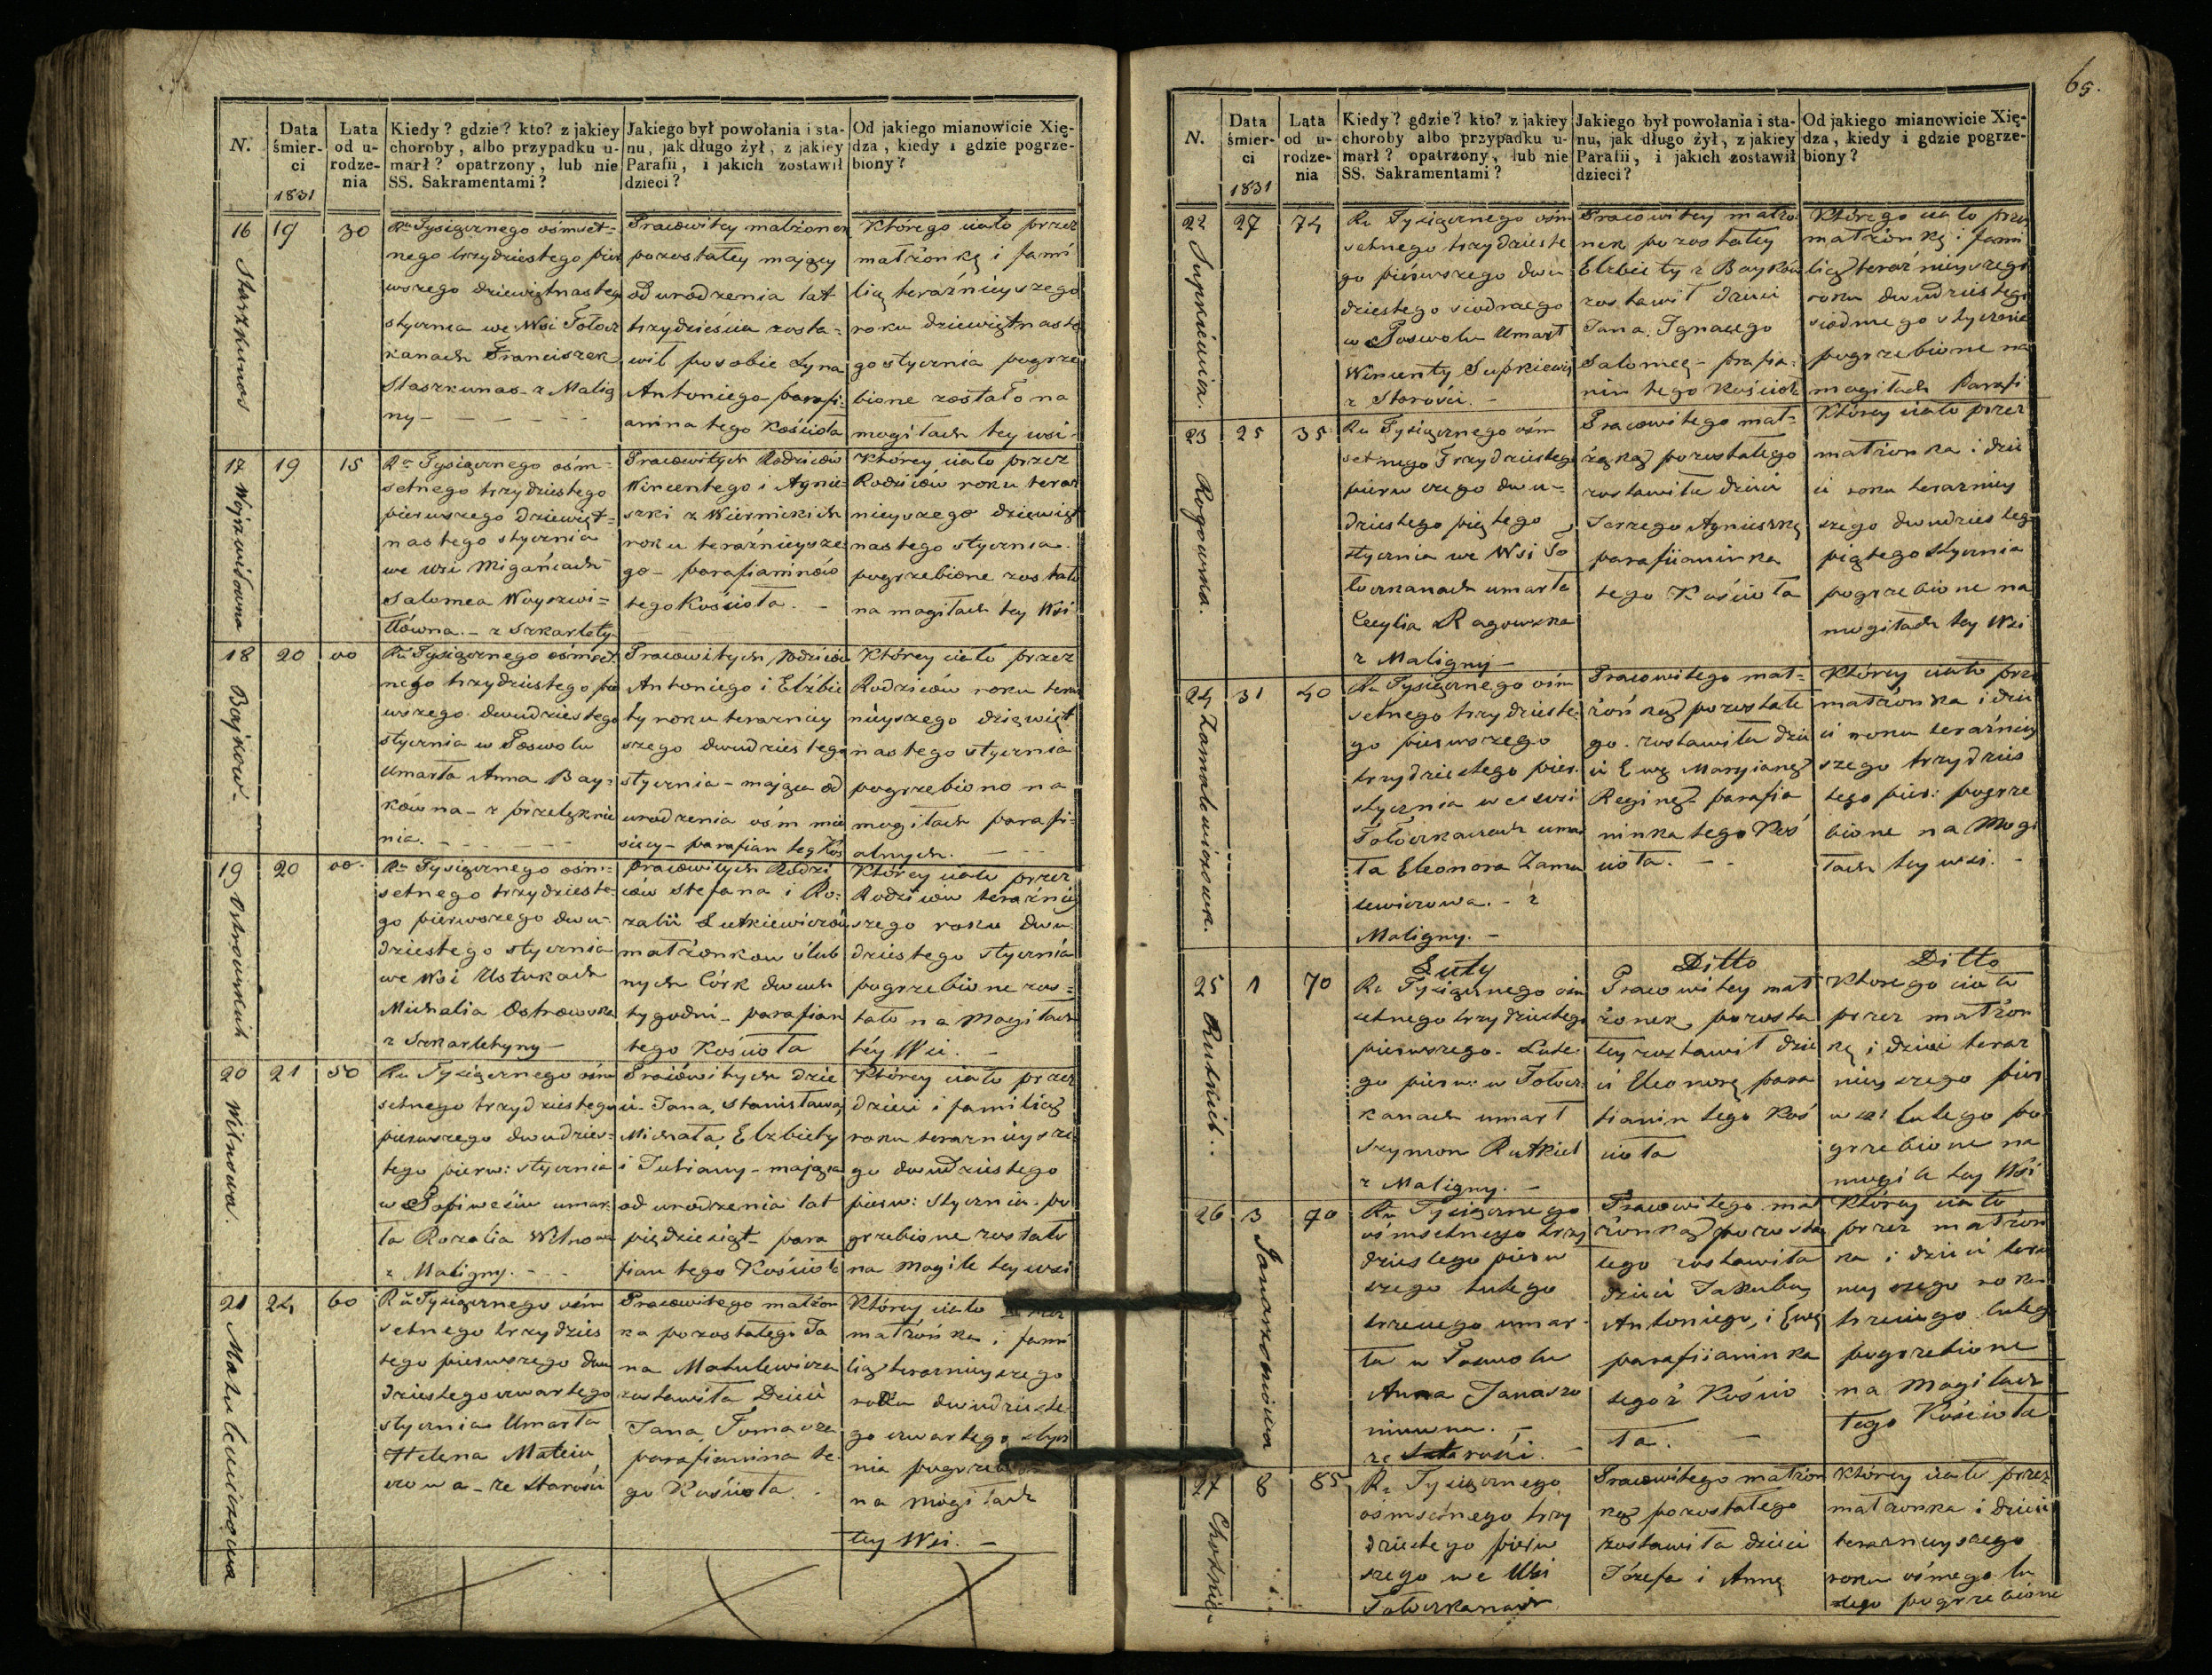 65.
N.
Data śmier-ci 1831
Lata od u-rodze-nia
Kiedy? gdzie? kto? z jakiey
choroby, albo przypadku u-
marł? opatrzony, lub nie
SS. Sakramentami?
Jakiego był powołania i sta-
nu, jak długo żył, z jakiey
Parafii, i jakich zostawił
dzieci?
Od jakiego mianowicie Xię-
dza, kiedy i gdzie pogrze-
biony?
16 Staszkunas
19
30
Ru Tysiącznego ośmset=
nego trzydziestego pier
wszego dziewiętnastego
stycznia we Wsi Tołocz
kanach Franciszek
Staszkunas z Malig
ny -
Pracowitey małżonek
pozostałey mający
od urodzenia lat
trzydzieścia zosta=
wił po sobie syna
Antoniego parafi=
anina tego Kościoła
Którego ciało przez
małżonkę i fami
lią teraźnieyszego
roku dziewiętnaste
go stycznia pogrze
bione zostało na
mogiłach tey wsi.
17 Woyszwiłowna
19
15
Ru Tysiącznego ośm=
setnego trzydziestego
pierwszego dziewięt=
nastego stycznia
we wsi Migańcach
Salomea Woyszwi=
łłówna. - z Szkarlety
Pracowitych Rodziców
Wincentego i Agnie=
szki z Wiernickich
roku teraźnieysze
go - parafianinów
tego Kościoła. -
Którey ciało przez
Rodziców roku teraz
nieyszego dziewięt
nastego stycznia
pogrzebione zostało
na mogiłach tey Wsi
18 Baykow-
20
00
Ru Tysiącznego ośmset
nego trzydziestego pier
wszego dwudziestego
stycznia w Poswolu
Umarła Anna Bay=
kówna - z przelęknie
nia. -
Pracowitych Rodziców
Antoniego i Elżbie
ty roku teraźniey
szego dwudziestego
stycznia - mająca od
urodzenia ośm mie
sięcy - parafian teg Koś
Którey ciało przez
Rodziców roku tera
nieyszego dziewięt
nastego stycznia
pogrzebiono na
mogiłach parafi=
alnych. -
19 Ostrowskich
20
00.
Ru Tysiącznego ośm=
setnego trzydzieste=
go pierwszego dwu-
dziestego stycznia
we Wsi Ustukach
Michalia Ostrowska
z Szkarletyny -
Pracowitych Rodzi
ców Stefana i Ro=
zalii Lutkiewiczów
małżonkow ślub
nych Córk dwuch
tygodni - parafian
tego Kościoła
Którey ciało przez
Rodziców teraźniey
szego roku dwu
dziestego stycznia
pogrzebione zos=
tało na Mogiłach
téy Wsi. -
20 Wilnowa.
21
50
Ru Tysiącznego ośm
setnego trzydziestego
pierwszego dwudzies=
tego pierw: stycznia
w umar:
ła Rozalia Wilnowa
z Maligny. - -
Pracowitych dzie
ci - Jana, Stanisława
Michała, Elżbiety
i Julianny - mająca
od urodzenia lat
pięćdziesiąt - para
fian tego Kościoła
Którey ciało przez
dzieci i familią
roku teraźnieysze
go dwudziestego
pierw: stycznia. po
grzebione zostało
na Mogile tey wsi
21 Matulewiczowa
24
60
Ru Tysiącznego ośm
setnego trzydzies
tego pierwszego dwu
dziestego czwartego
stycznia Umarła
Helena Matulew
czowa - ze starości
Pracowitego małżon
ka pozostałego Ja
na Matulewicza
zostawiła Dzieci
Jana, Tomasza
parafianina te
go Kościoła. -
Którey ciało przez
małżonka i fami
lią teraźnieyszego
roku dwudzieste
go czwartego stycz
nia
na mogiłach
tey Wsi. -
N.
Data śmier-ci 1831
Lata od u-rodze-nia
Kiedy? gdzie? kto? z jakiey
choroby albo przypadku u-
marł? opatrzony, lub nie
SS. Sakramentami?
Jakiego był powołania i sta-
nu, jak długo żył, z jakiey
Parafii, i jakich zostawił
dzieci?
Od jakiego mianowicie Xię-
dza, kiedy i gdzie pogrze-
biony?
22 Supkiewicz.
27
74
Ru Tysiącznego ośm
setnego trzydzieste
go pierwszego dwu
dziestego siodmego
w Poswolu Umarł
Wincenty Supkiewicz
z Starości. -
Pracowitey małżo
nek pozostałey
Elżbiety z Baykow
zostawił dzieci
Jana, Ignacego
Salomeę - parafia
nin tego Kościoła
Którego ciało przez
małżonkę i fami
lią teraźnieyszego
roku dwudziestego
siodmego stycznia
pogrzebione na
mogiłach Parafi
23 Rogowska.
25
35
Ru Tysiącznego ośm
setnego Trzydziestego
pierwszego dwu-
dziestego piętego
stycznia we Wsi To
łoczkanach umarła
Cecylia Ragowska
z Maligny -
Pracowitego mał=
żąką pozostałego
zostawiła dzieci
Jerzego Agnieszkę
parafiianinka
tego Kościoła
Którey ciało przez
małżonka i dzie
ci roku teraźniey
szego dwudziestego
piątego stycznia
pogrzebione na
mogiłach tey Wsi
24
31
40
Ru Tysiącznego ośm
setnego trzydzieste
go pierwszego
trzydziestego pier.
stycznia we wsi
Tołoczkanach umar
ła Eleonora Zamu
lewiczowa. - z
Maligny. -
Pracowitego mał=
żonką pozostałe
go. zostawiła dzie
ci Ewę Maryiannę
Reginę parafia
ninka tego Koś
cioła. - -
Którey ciało prze
małżonka i dzie
ci roku teraźniey
szego trzydzies
tego pier: pogrze
bione na Mogi
łach tey wsi. -
25 Rutkiel.
1
70
Luty
Ru Tysiącznego ośm
setnego trzydziestego
pierwszego. Lute
go pierw: w Tołocz
kanach umarł
Szymon Rutkiel
z Maligny. -
Ditto
Pracowitey mał
żonek pozosta
łey zostawił dzie
ci Eleonorę para
fianin tego Koś
cioła
Ditto
Ktorego ciało
przez małżon
kę i dzieci teraz
nieyszego pier
wsz: lutego po
grzebione na
mogile tey Wsi
26
3
70
Ru Tysiącznego
ośmsetnego trzy
dziestego pierw
szego Lutego
trzeciego umar-
ła w Poswolu
Anna Janaszo
niowna. -
ze Starości. -
Pracowitego mał
żonką pozosta
łego zostawiła
dzieci Jakuba
Antoniego, i Ewę
parafiianinka
tegoż Kościo
ła. -
Którey ciało
przez małżon
ka i dzieci tera
nieyszego roku
trzeciego lutego
pogrzebione
na Mogiłach
tego Kościoła
27
8
85
Ru Tysiącznego
ośmsetnego trzy
dziestego pierw
szego we Wsi
Tołoczkanach
Pracowitego małżon
ką pozostałego
zostawiła dzieci
Józefa i Annę
Którey ciało przez
małżonka i dzieci
teraźnieyszego
roku ósmego lu
tego pogrzebione